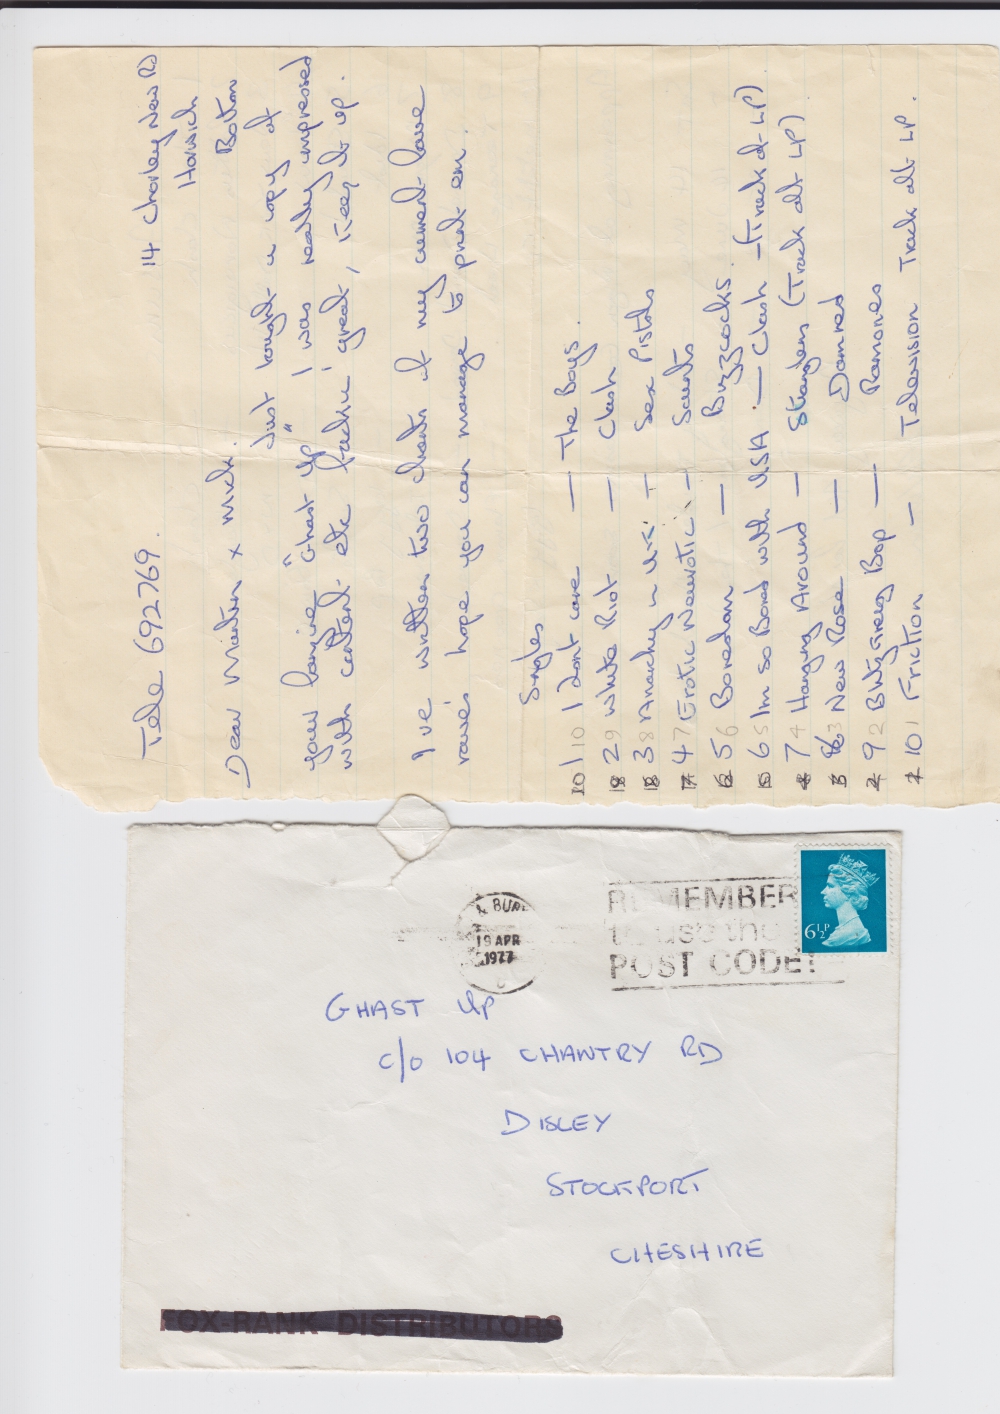 14 Chorley New Rd
Horwich
Bolton
Tele 692769.
Dear Martin x Mick.
Just bought a copy of
your fanzine "Ghast Up" I was really impressed
with content etc fuckin' great, keep it up.
I've written two charts of my current fave
raves hope you can manage to print em.
Singles
10 1 10 I dont care — The Boys.
2 9 White Riot — Clash
3 8 Anarchy in U.K. — Sex Pistols
4 7 Erotic Neurotic — Saints
5 6 Boredom — Buzzcocks.
6 5 Im so Bored with USA — Clash — (Track of LP)
7 4 Hanging Around — Stranglers (Track alt LP).
8 3 New Rose — Damned
9 2 Blitzgreig Bop — Ramones
10 1 Friction — Television Track alt LP.
19 APR
1977
REMEMBER
to use the
POST CODE!
6½P
GHAST UP
C/O 104 CHANTRY RD
DISLEY
STOCKPORT
CHESHIRE
FOX-RANK DISTRIBUTORS